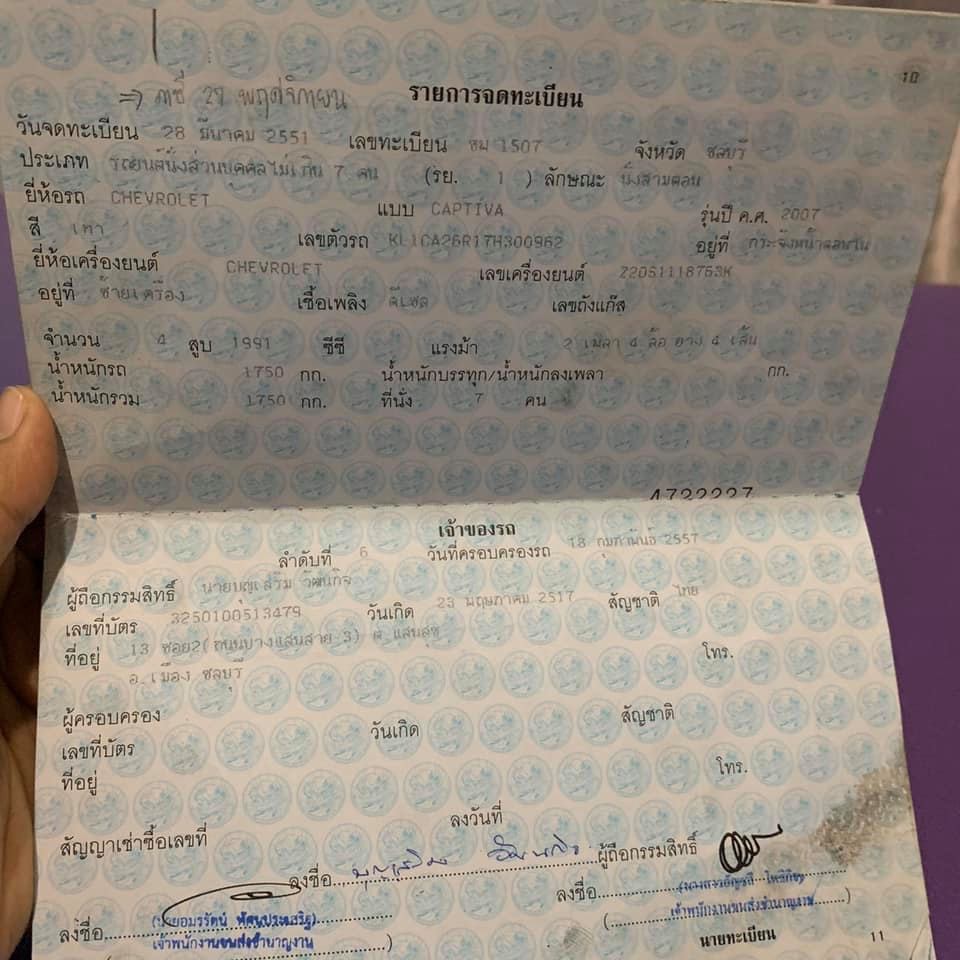 10
⇒ ภาษี 27 พฤศจิกายน
รายการจดทะเบียน
วันจดทะเบียน 28 มีนาคม 2551 เลขทะเบียน ชม 1507 จังหวัด ชลบุรี
ประเภท รถยนต์นั่งส่วนบุคคลไม่เกิน 7 คน (รย. 1 ) ลักษณะ นั่งสามตอน
ยี่ห้อรถ CHEVROLET แบบ CAPTIVA รุ่นปี ค.ศ. 2007
สี เทา เลขตัวรถ KL1CA26R17H300962 อยู่ที่
ยี่ห้อเครื่องยนต์ CHEVROLET เลขเครื่องยนต์ Z20S1118763K
อยู่ที่ ซ้ายเครื่อง เชื้อเพลิง ดีเซล เลขถังแก๊ส
จำนวน 4 สูบ 1991 ซีซี แรงม้า 2 เพลา 4 ล้อ ยาง 4 เส้น
น้ำหนักรถ 1750 กก. น้ำหนักบรรทุก/น้ำหนักลงเพลา กก.
น้ำหนักรวม 1750 กก. ที่นั่ง 7 คน
4722227
เจ้าของรถ
ลำดับที่ 6 วันที่ครอบครองรถ 13 กุมภาพันธ์ 2557
ผู้ถือกรรมสิทธิ์ นายบุญเสริม วัฒนกิจ
เลขที่บัตร 3250100513479 วันเกิด 23 พฤษภาคม 2517 สัญชาติ ไทย
ที่อยู่ 13 ซอย2(ถนนบางแสนสาย 3) ต แสนสุข โทร.
อ.เมือง ชลบุรี
ผู้ครอบครอง
เลขที่บัตร วันเกิด สัญชาติ
ที่อยู่ โทร.
สัญญาเช่าซื้อเลขที่ ลงวันที่
ลงชื่อ บุญเสริม วัฒนกิจ ผู้ถือกรรมสิทธิ์
ลงชื่อ
ลงชื่อ
เจ้าพนักงานขนส่งชำนาญงาน
เจ้าพนักงานขนส่งชำนาญงาน
นายทะเบียน
11